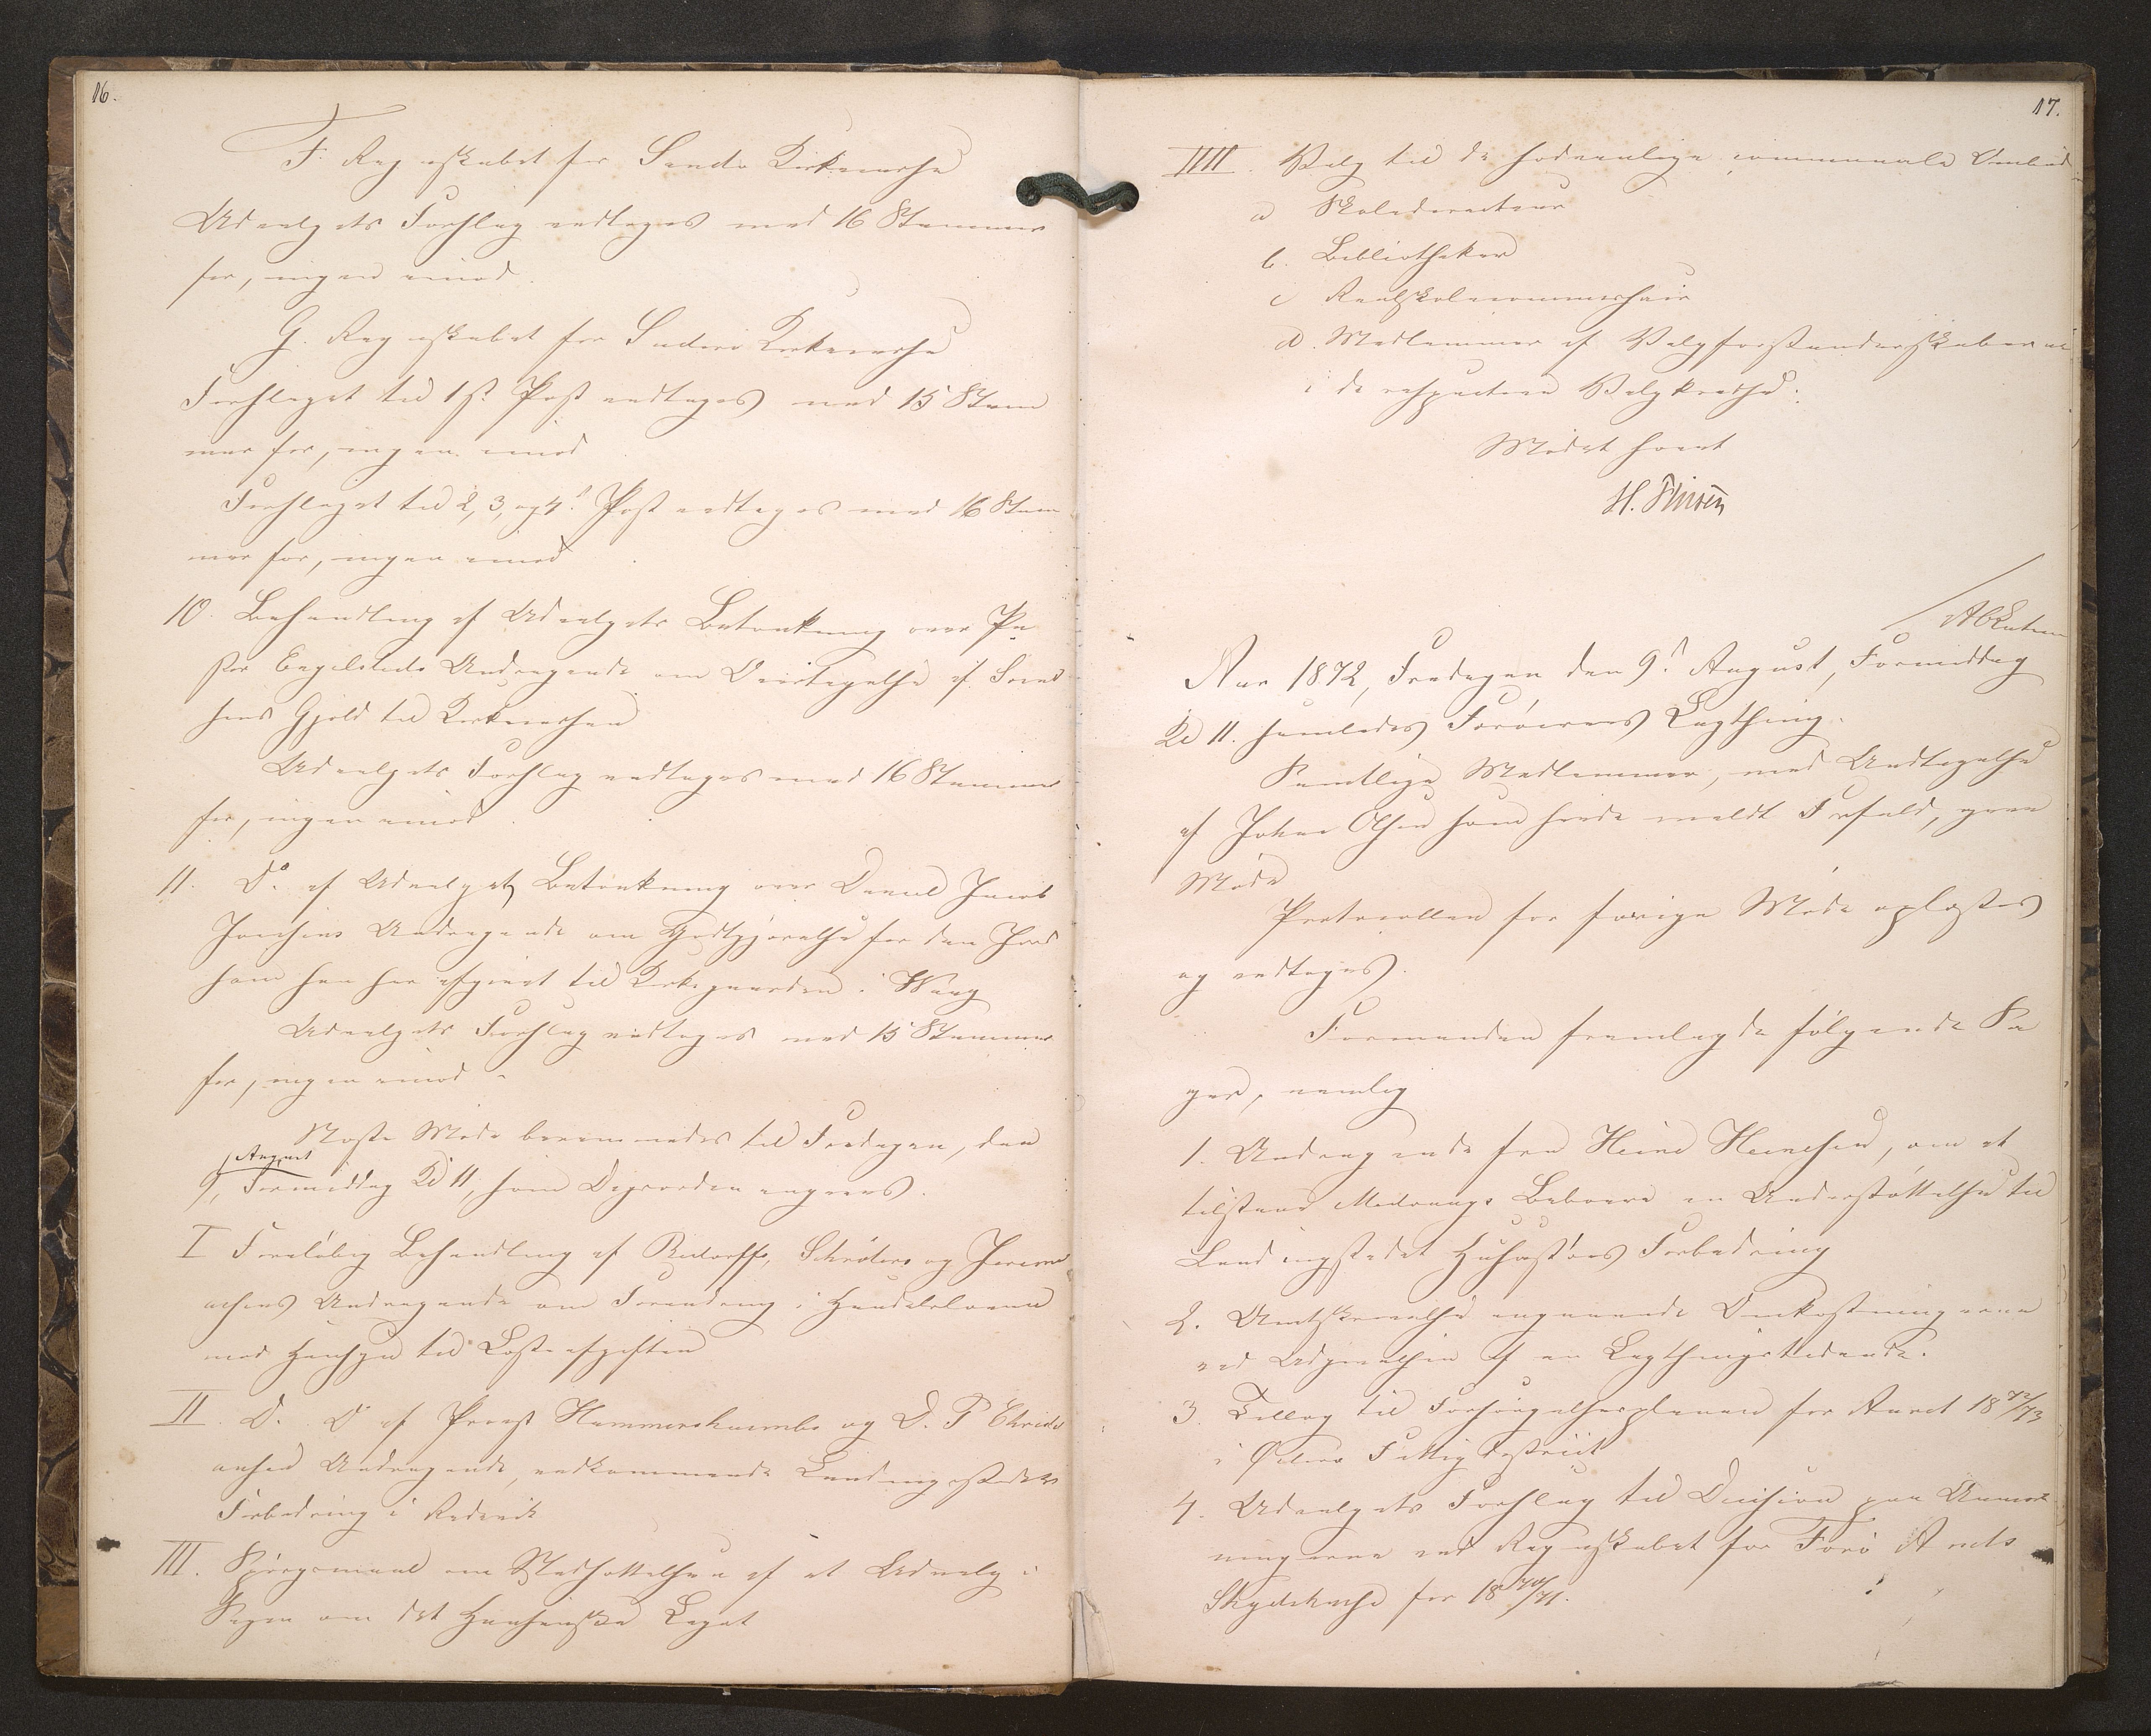 16.
F. Regnskabet for Sandø Kirkecasse
Udvalgets Forslag vedtoges med 16 Stemmer
for, ingen imod.
G. Regnskabet for Suderø Kirkecasse
Forslaget til 1ste Post vedtoges med 15 Stem
mer for, ingen imod
Forslaget til 2, 3, og 4de Post vedtoges med 16 Stem
mer for, ingen imod.
10. Behandling af Udvalgets Betænkning over Pa
stor Engelsteds Andragende om Overtagelse af
Gjeld til Kirkecassen
Udvalgets Forslag vedtoges med 16 Stemmer
for, ingen imod.
11. Do. af Udvalgets Betænkning over Daniel Jacob
Andragende om Godtgjørelse for den Jord
som han har afgivet til Kirkegaarden i Waag
Udvalgets Forslag vedtoges med 15 Stemmer
for, ingen imod.
Næste Møde berammedes til Fredagen, den
August
9, Formiddag Kl 11, som Dagsorden angaves.
I Foreløbig Behandling af Schrøters og
Andragende om Forandring i Handelsloven
med Hensyn til Lasteafgiften
II. Do. Do af Provst Hammershaimbs og D. P.
ansen Andragende, vedkommende Landingsstedets
Forbedring i
III. Spørgsmaal om Nedsættelsen af et Udvalg i
Sagen om det Hansenske Legat
17.
IIII. Valg til de sædvanlige communale Ombud
a Skoledirecteur
b. Bibliothekar
c Realskolecommissair
d. Medlemmer af Valgforstanderskaberne
i de respective Valgkredse.
Mødet hævet
H. Finsen
Aar 1872, Fredagen den 9de August, Formiddag
Kl 11. samledes Færøernes Lagthing.
Samtlige Medlemmer, med Undtagelse
af Johan Olsen som havde meldt Forfald, gave
Møde
Protocollen for forrige Møde oplæstes
og vedtoges.
Formanden fremlagde følgende Sa
ger, nemlig
1. Andragende fra Heine Heinesen, om at
tilstaae Beboere en Understøttelse til
Landingsstedet Forbedring
2. Amtskrivelse angaaende Omkostningerne
ved Udgivelsen af en Lagthingstidende.
3. Tillæg til Forsørgelsesplanen for Aaret 1872/73
i Fattigdistrict
4. Udvalgets Forslag til Decision paa Anmærk
ningerne ved Regnskabet for Færø Amts
Skydskasse for 1870/71.